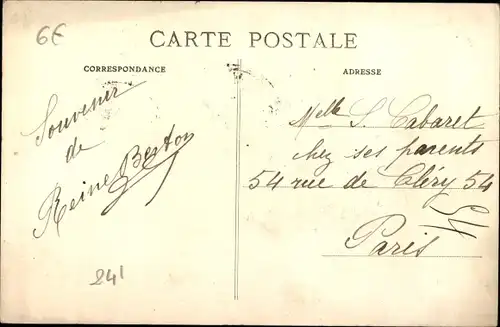 6€
CARTE POSTALE
CORRESPONDANCE
ADRESSE
Souvenir
de
Reine Berton
241
Melle S. Cabaret
chez ses parents
54 rue de Cléry 54
Paris